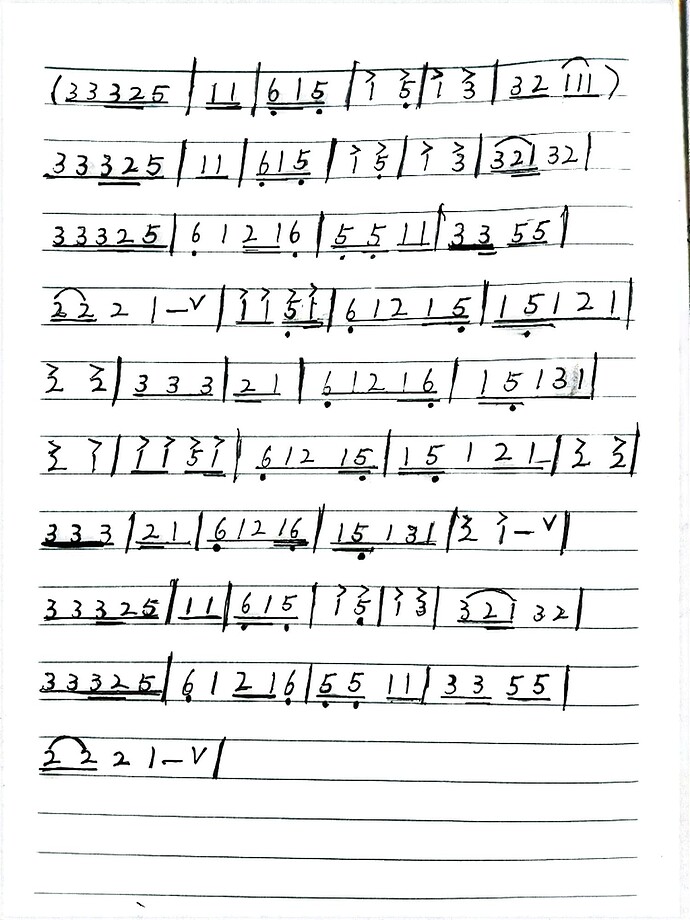 (33325|11|615|1 5|1 3|32 111)
33325|11|615|1 5|1 3|321 32|
33325|61216|5511|33 55|
222 1-V|11 51|61215|15121|
2 2|333|21|61216|15131|
2 1|11 51|61215|15121|2 2|
333|21|61216|15131|2 1-V|
33325|11|615|1 5|1 3|321 32|
33325|61216|55 11|33 55|
222 1-V|